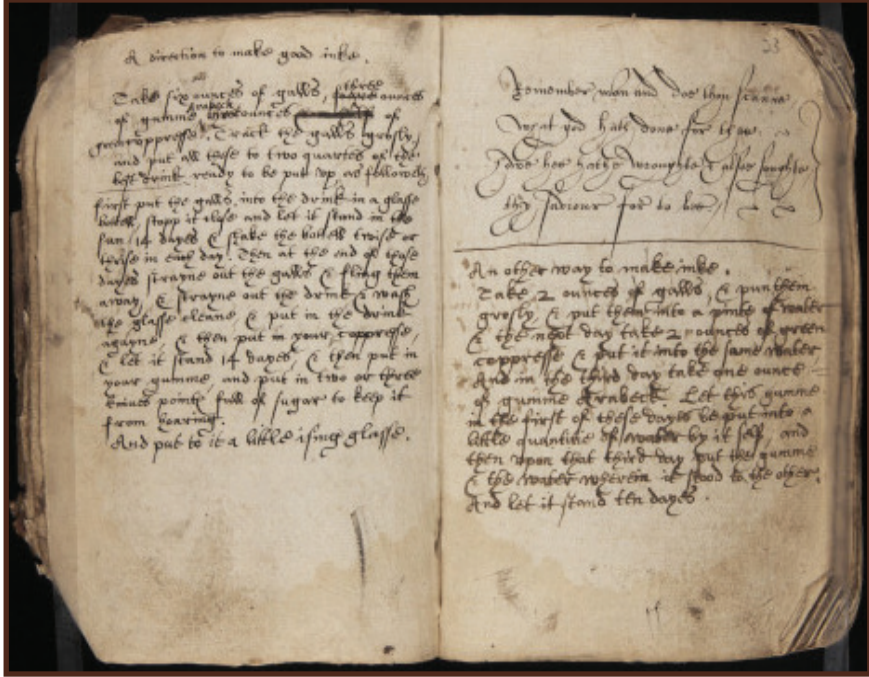 A direction to make good inke.
Take six ounces of galls, three ounces
of gumme arabeck, ounces of
greencoppresse. Crack the galls grosly,
and put all these to two quartes of the
best drink ready to be put up as followeth
first put the galls into the drink in a glasse
bottell, stopp it close and let it stand in the
sun 14 dayes & shake the bottell twise or
thrise in each day. Then at the end of those
dayes strayne out the galls & fling them
away, & strayne out the drink & wash
the glasse cleane, & put in the drink
agayne, & then put in your coppresse,
& let it stand 14 dayes, & then put in
your gumme, and put in two or three
knives pointes full of sugar to keep it
from hoaring.
And put to it a little ising glasse.
33
Remember man and doe thou scanne
What god hath done for thee
How hee hathe wroughte & allso soughte
thy saviour for to bee
An other way to make inke.
Take 2 ounces of galls, & pun them
grosly, & put them into a pinte of water
& the next day take 2 ounces of green
coppresse & put it into the same water
And in the third day take one ounce
of gumme Arabeck. Let this gumme
in the first of these dayes be put into a
little quantitie of water by it self, and
then upon that third day put the gumme
& the water wherein it stood to the other.
And let it stand ten dayes.